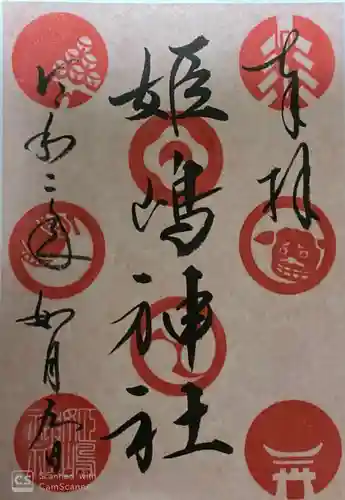 奉拝
姫嶋神社
令和二年 如月 九日
姫嶋神社
CS Scanned with
CamScanner